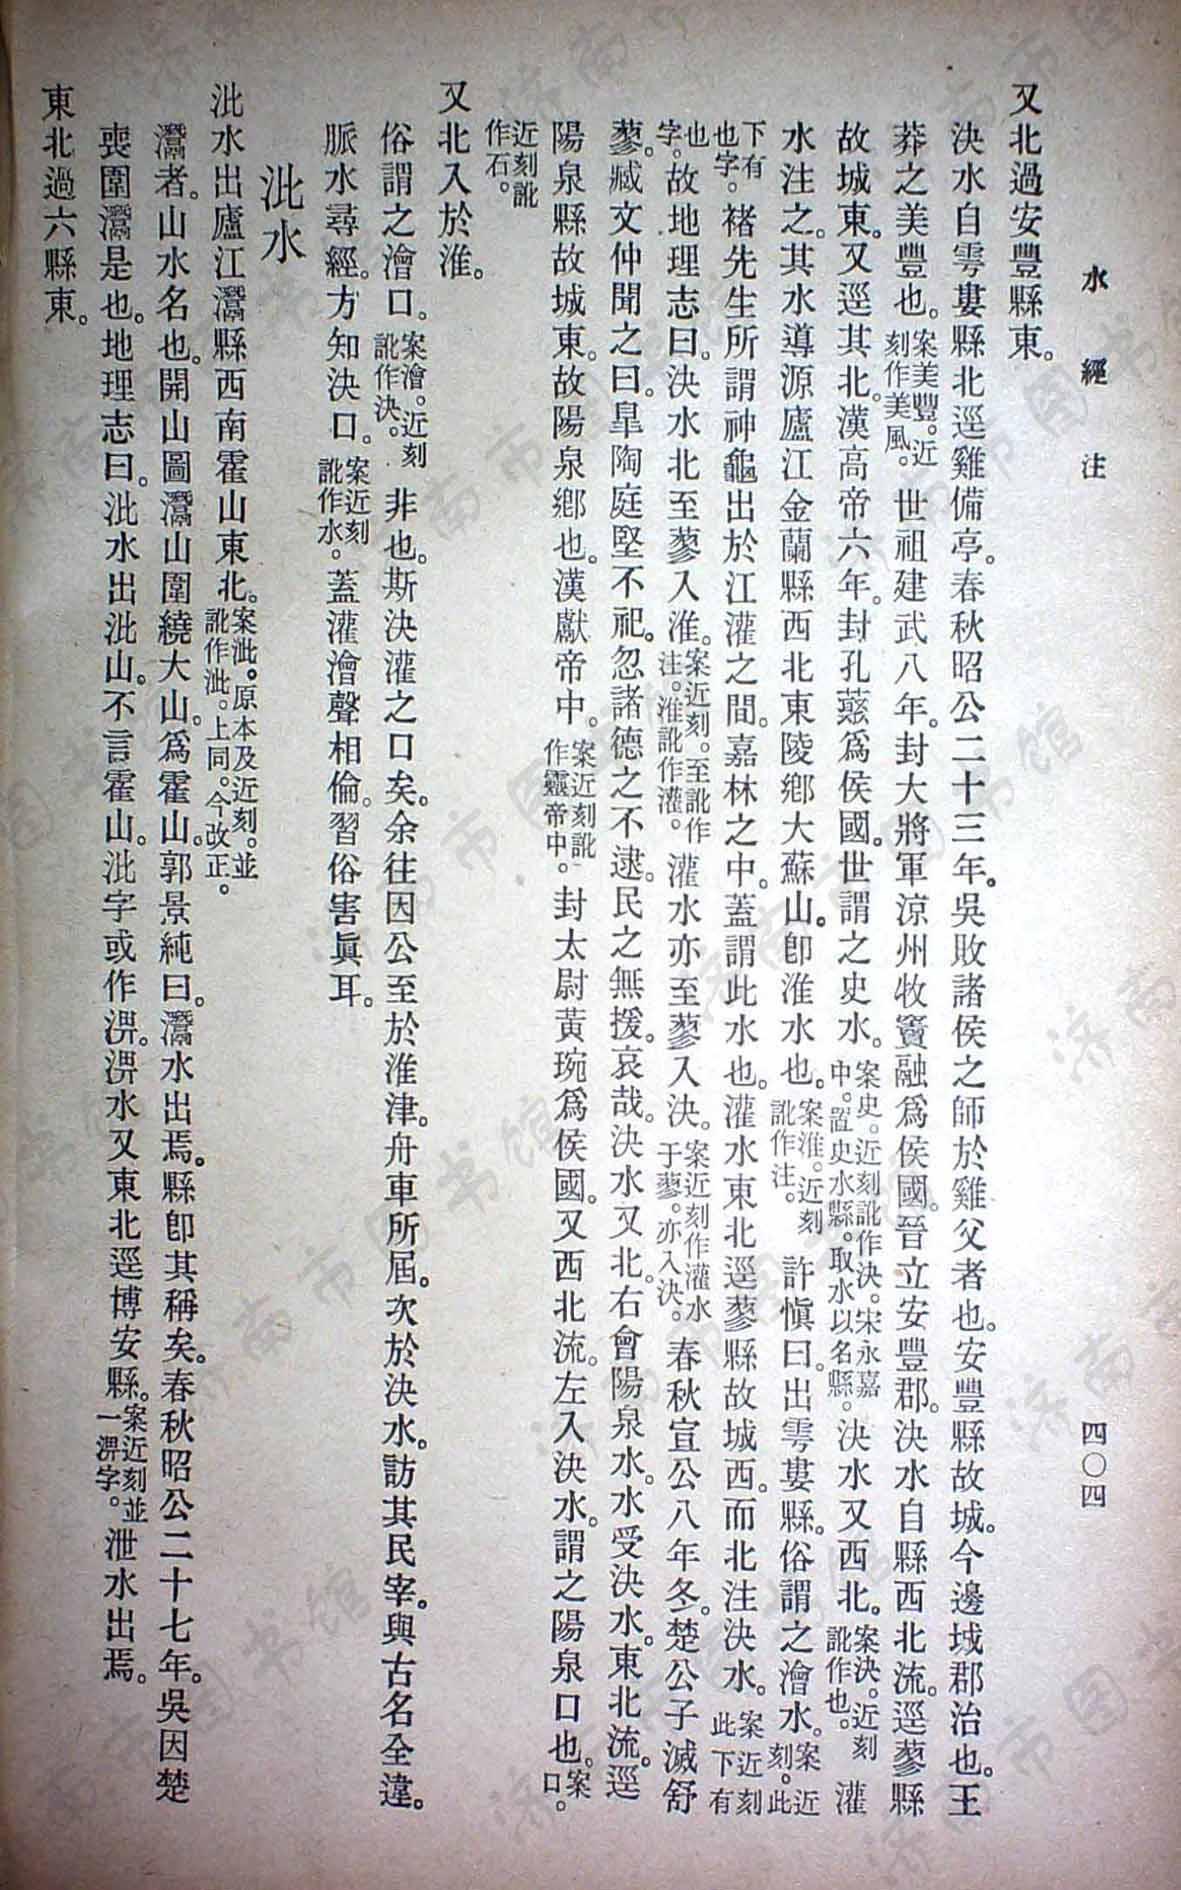 水經注
四〇四
又北過安豐縣東。
決水自雩婁縣北逕雞備亭。春秋昭公二十三年。吳敗諸侯之師於雞父者也。安豐縣故城。今邊城郡治也。王
莽之美豐也。案美豐。近刻作美風。世祖建武八年。封大將軍涼州牧竇融爲侯國。晉立安豐郡。決水自縣西北流。逕蓼縣
故城東。又逕其北。漢高帝六年。封孔藂爲侯國。世謂之史水。案史。近刻訛作決。宋永嘉中。置史水縣。取水以名縣。決水又西北。案決。近刻訛作也。灌
水注之。其水導源廬江金蘭縣西北東陵鄉大蘇山。卽淮水也。案淮。近刻訛作注。許愼曰。出雩婁縣。俗謂之澮水。案近刻。此
下有也字。褚先生所謂神龜出於江灌之間。嘉林之中。蓋謂此水也。灌水東北逕蓼縣故城西。而北注決水。案近刻此下有
也字。故地理志曰。決水北至蓼入淮。案近刻。至訛作注。淮訛作灌。灌水亦至蓼入決。案近刻作灌水于蓼。亦入決。春秋宣公八年冬。楚公子滅舒
蓼。臧文仲聞之曰。皐陶庭堅不祀。忽諸德之不逮。民之無援。哀哉。決水又北。右會陽泉水。水受決水。東北流。逕
陽泉縣故城東。故陽泉鄉也。漢獻帝中。案近刻訛作靈帝中。封太尉黃琬爲侯國。又西北流。左入決水。謂之陽泉口也。案口。
近刻訛作石。
又北入於淮。
俗謂之澮口。案澮。近刻訛作決。非也。斯決灌之口矣。余往因公至於淮津。舟車所屆。次於決水。訪其民宰。與古名全違。
脈水尋經。方知決口。案近刻訛作水。蓋灌澮聲相倫。習俗害眞耳。
沘水
沘水出廬江灊縣西南霍山東北。案沘。原本及近刻。並訛作泚。上同。今改正。
灊者。山水名也。開山圖灊山圍繞大山。爲霍山。郭景純曰。灊水出焉。縣卽其稱矣。春秋昭公二十七年。吳因楚
喪圍灊是也。地理志曰。沘水出沘山。不言霍山。沘字或作淠。淠水又東北逕博安縣。案近刻並一淠字。泄水出焉。
東北過六縣東。